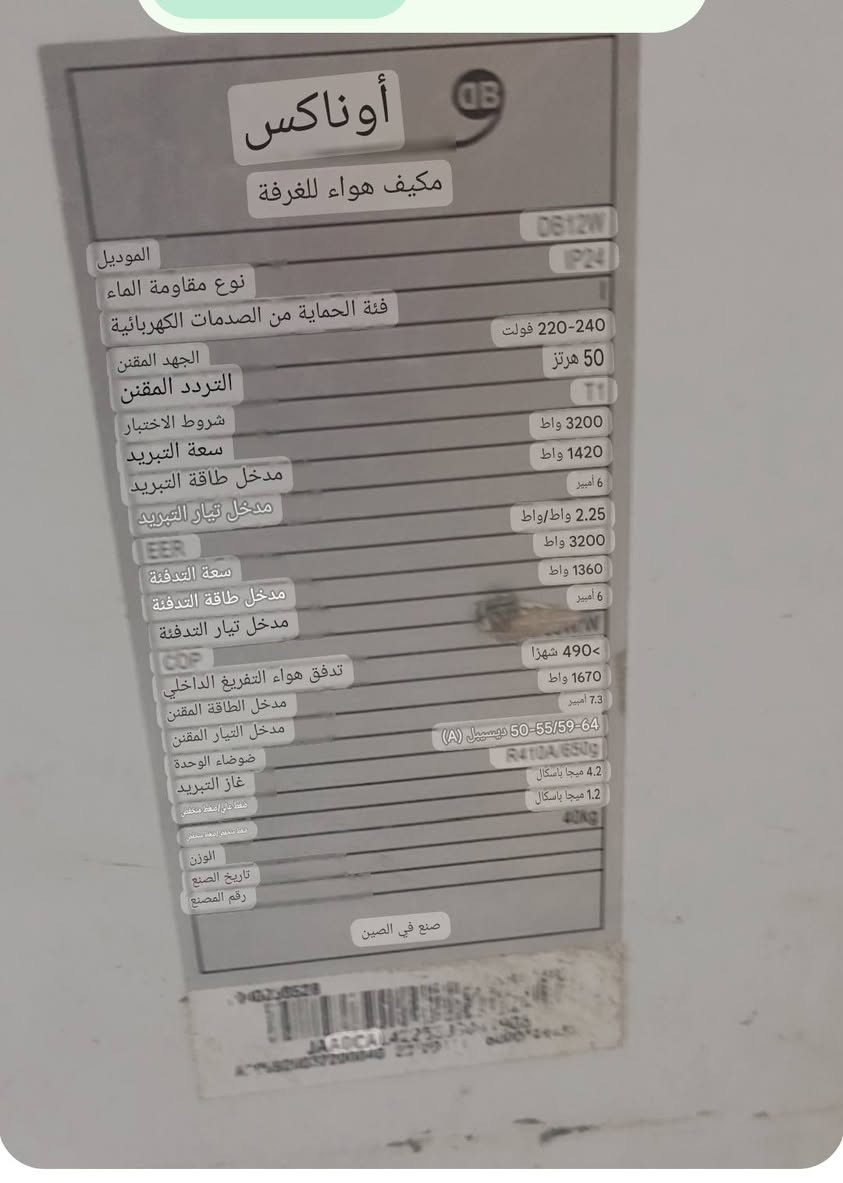 أوناكس
مكيف هواء للغرفة
الموديل DB12W
نوع مقاومة الماء IP24
فئة الحماية من الصدمات الكهربائية I
الجهد المقنن 220-240 فولت
التردد المقنن 50 هرتز
شروط الاختبار T1
سعة التبريد 3200 واط
مدخل طاقة التبريد 1420 واط
مدخل تيار التبريد 6 أمبير
EER 2.25 واط/واط
سعة التدفئة 3200 واط
مدخل طاقة التدفئة 1360 واط
مدخل تيار التدفئة 6 أمبير
COP
تدفق هواء التفريغ الداخلي >490 شهرًا
مدخل الطاقة المقنن 1670 واط
مدخل التيار المقنن 7.3 أمبير
ضوضاء الوحدة 50-55/59-64 ديسيبل (A)
غاز التبريد R410A/650g
4.2 ميجا باسكال
1.2 ميجا باسكال
الوزن 40kg
تاريخ الصنع
رقم المصنع
صنع في الصين